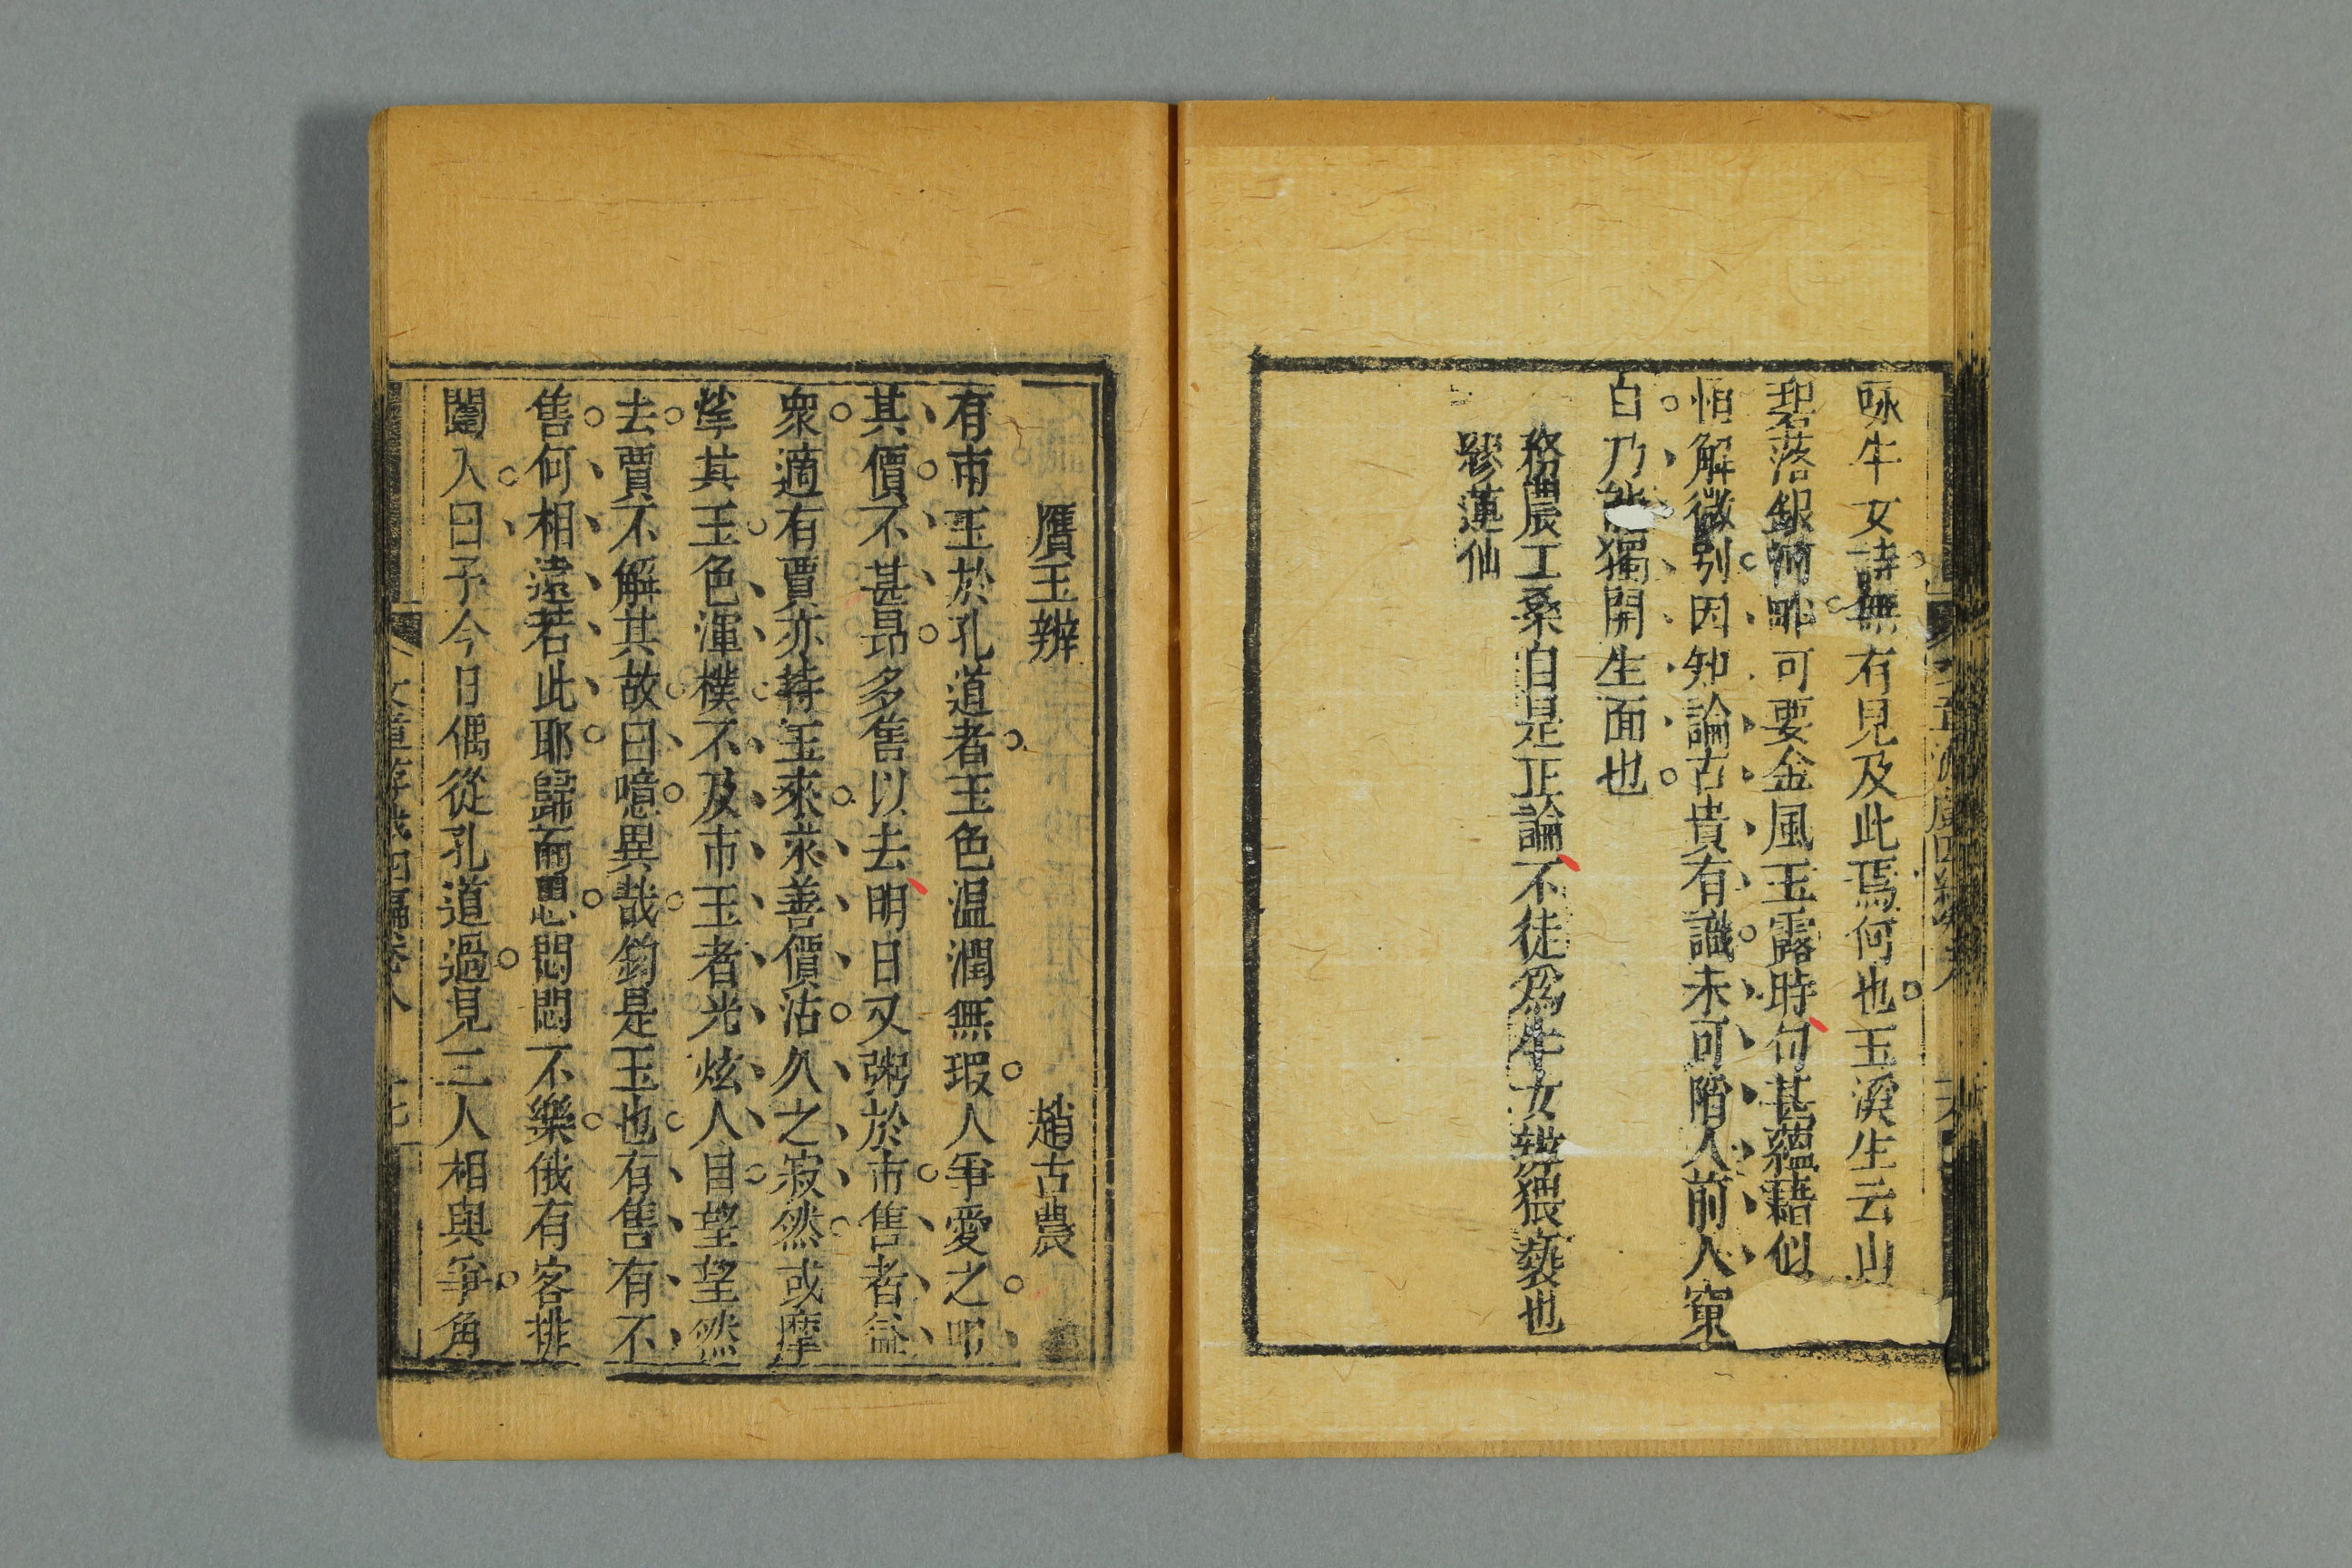 咏牛女詩無有見及此焉何也玉溪生云山
碧落銀河畔可要金風玉露時句甚蘊藉似
怕解微引因知論古貴有識未可隨人前人窠
白乃能獨開生面也
務農工桑自是正論不徒爲牛女辨猥褻也
繆蓮仙
贋玉辨
趙古農
有市玉於孔道者玉色温潤無瑕人爭愛之叩
其價不甚昂多售以去明日又粥於市售者益
衆適有賈亦持玉來求善價沽久之寂然或摩
挲其玉色渾樸不及市玉者光炫人目望望然
去賈不解其故曰噫異哉鈞是玉也有售有不
售何相遠若此耶歸而思悶悶不樂俄有客排
闥入曰予今日偶從孔道過見三人相與爭角
文章游戲四編卷八